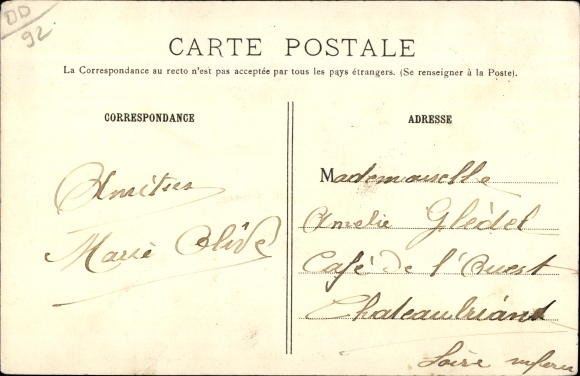 DD
92
CARTE POSTALE
La Correspondance au recto n'est pas acceptée par tous les pays étrangers. (Se renseigner à la Poste).
CORRESPONDANCE
Amitiés
Marie Olive
ADRESSE
Mademoiselle
Amelie Glédel
Café de l'Ouest
Chateaubriand
Loire infer